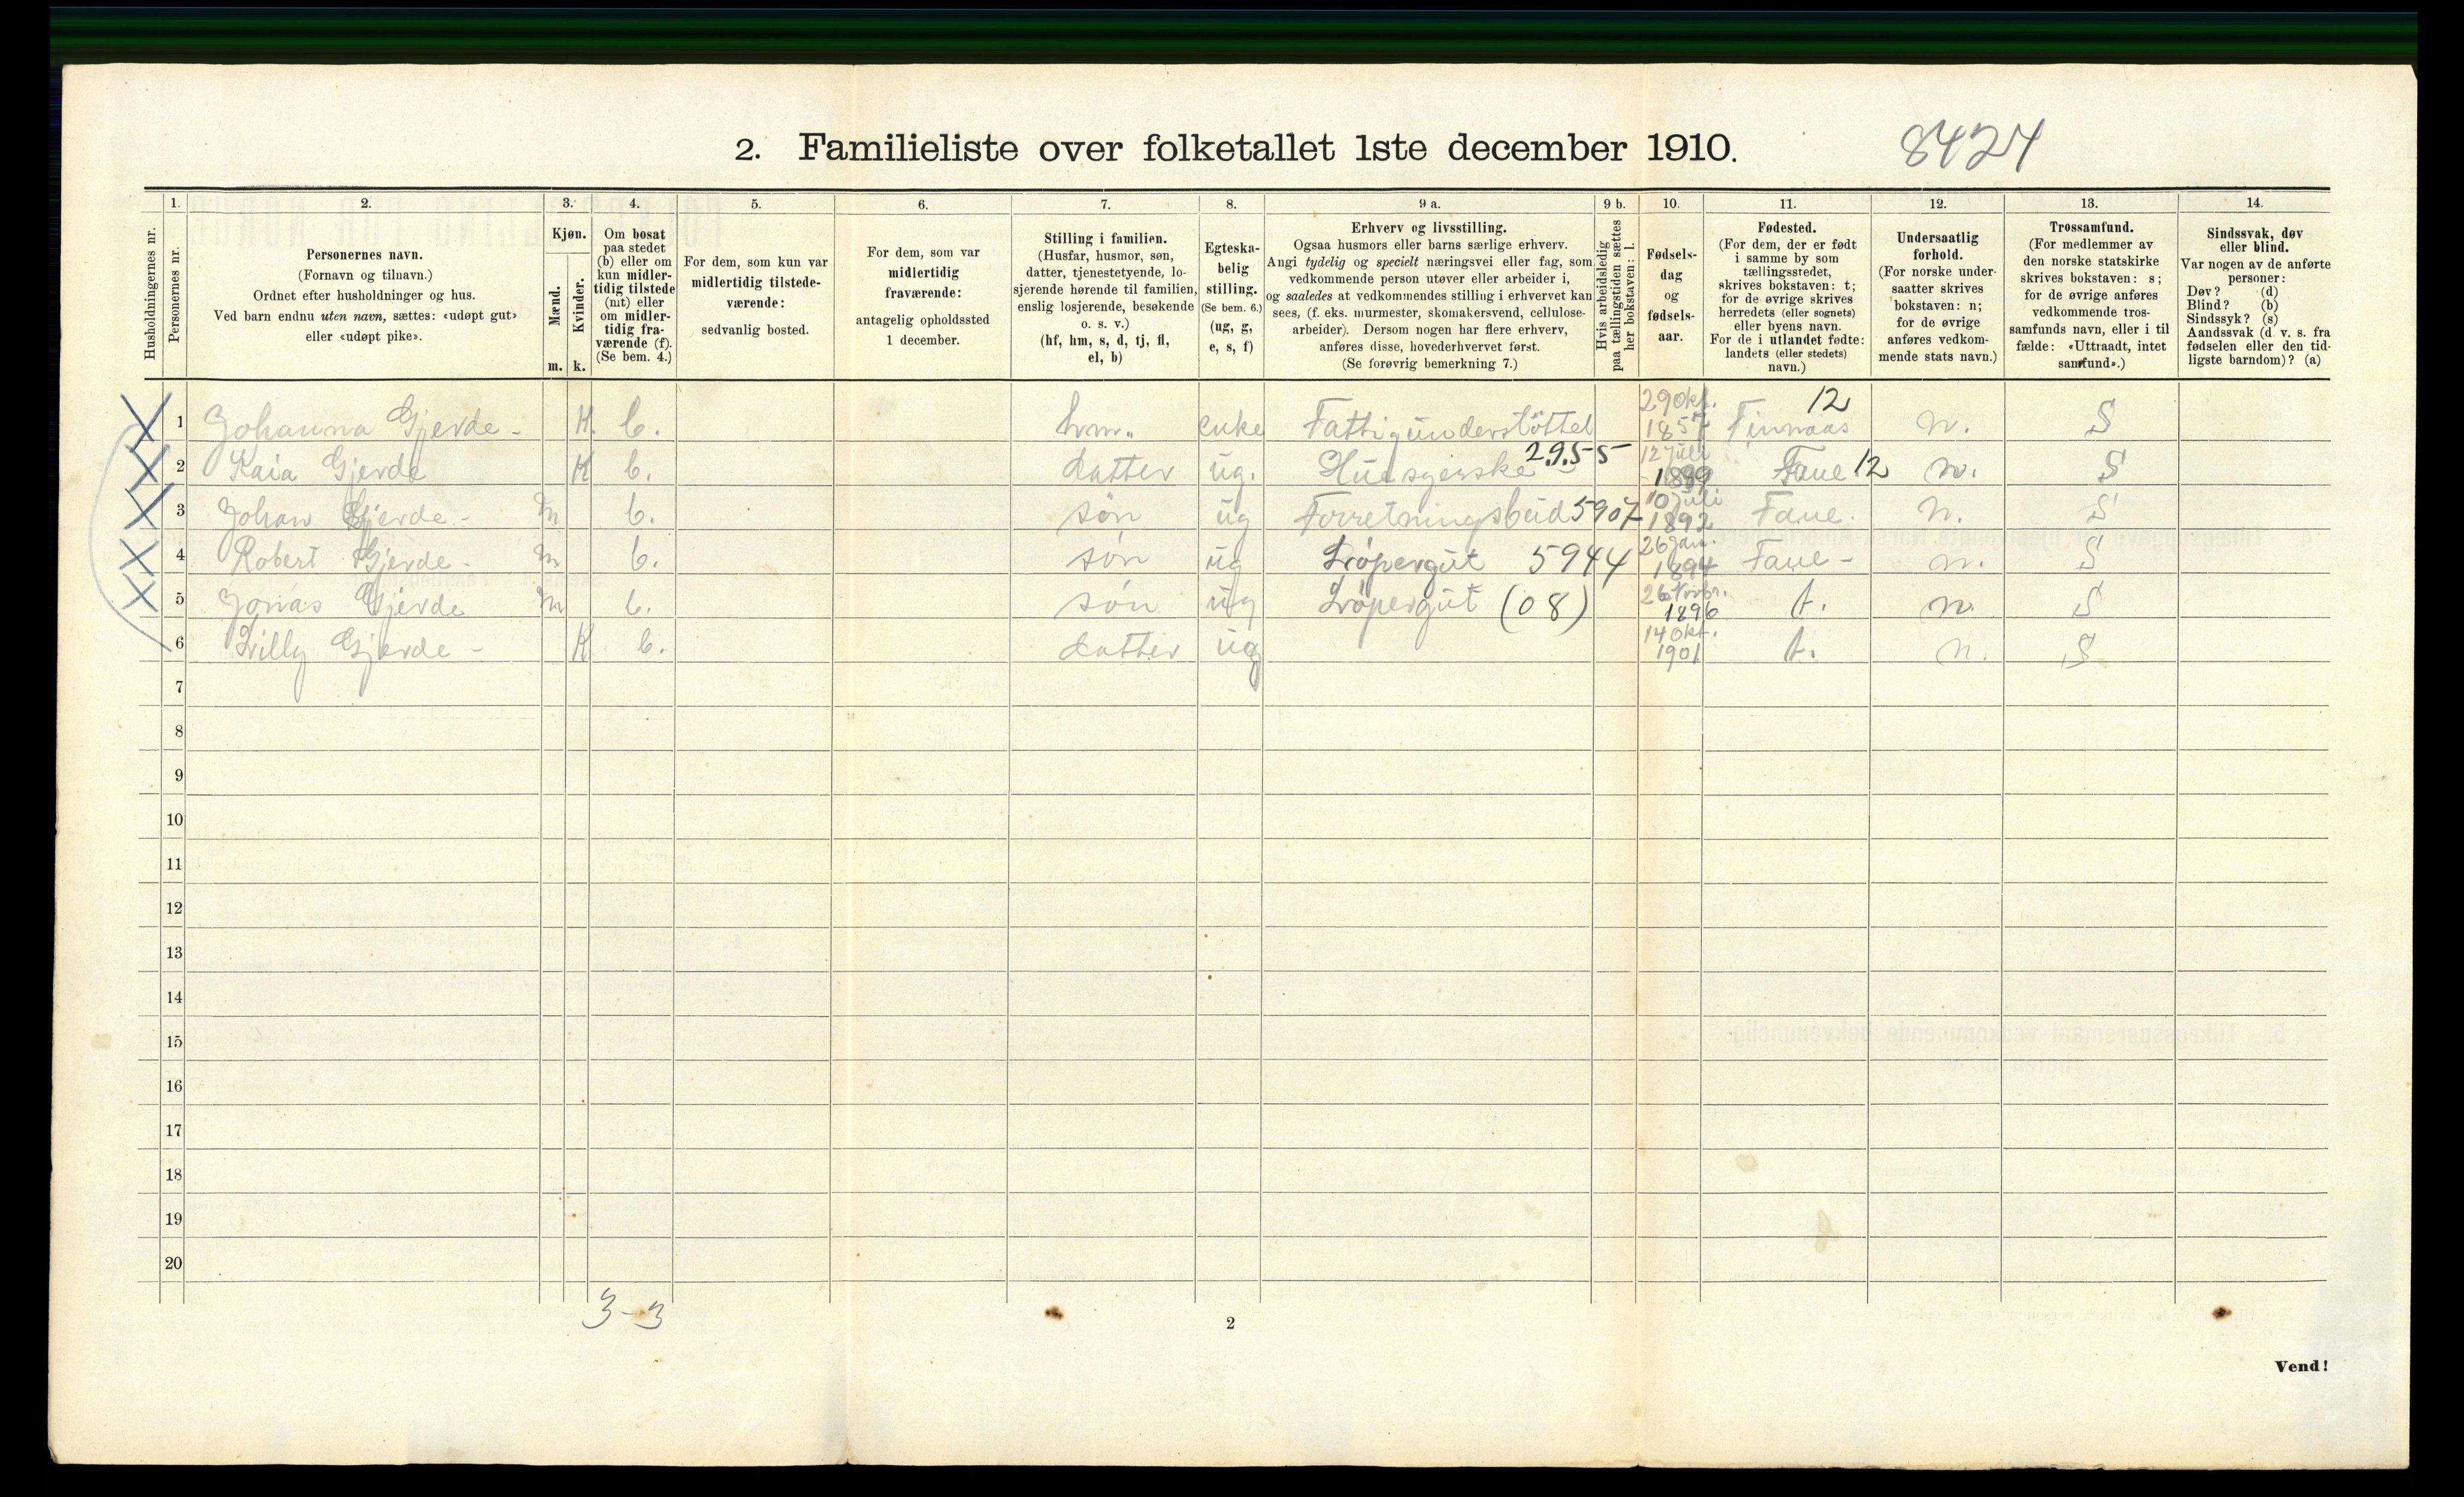 2. Familieliste over folketallet 1ste december 1910.
8424
Husholdningernes nr.
1.
Personernes nr.
2.
Personernes navn.
(Fornavn og tilnavn.)
Ordnet efter husholdninger og hus.
Ved barn endnu uten navn, sættes: «udøpt gut»
eller «udøpt pike».
3.
Kjøn.
Mænd.
Kvinder.
m. k.
4.
Om bosat
paa stedet
(b) eller om
kun midler-
tidig tilstede
(mt) eller
om midler-
tidig fra-
værende (f).
(Se bem. 4.)
5.
For dem, som kun var
midlertidig tilstede-
værende:
sedvanlig bosted.
6.
For dem, som var
midlertidig
fraværende:
antagelig opholdssted
1 december.
7.
Stilling i familien.
(Husfar, husmor, søn,
datter, tjenestetyende, lo-
sjerende hørende til familien,
enslig losjerende, besøkende
o. s. v.)
(hf, hm, s, d, tj, fl,
el, b)
8.
Egteska-
belig
stilling.
(Se bem. 6.)
(ug, g,
e, s, f)
9 a.
Erhverv og livsstilling.
Ogsaa husmors eller barns særlige erhverv.
Angi tydelig og specielt næringsvei eller fag, som
vedkommende person utøver eller arbeider i,
og saaledes at vedkommendes stilling i erhvervet kan
sees, (f. eks. murmester, skomakersvend, cellulose-
arbeider). Dersom nogen har flere erhverv,
anføres disse, hovederhvervet først.
(Se forøvrig bemerkning 7.)
9 b.
Hvis arbeidsledig
paa tællingstiden sættes
her bokstaven: l.
10.
Fødsels-
dag
og
fødsels-
aar.
11.
Fødested.
(For dem, der er født
i samme by som
tællingsstedet,
skrives bokstaven: t;
for de øvrige skrives
herredets (eller sognets)
eller byens navn.
For de i utlandet fødte:
landets (eller stedets)
navn.)
12.
Undersaatlig
forhold.
(For norske under-
saatter skrives
bokstaven: n;
for de øvrige
anføres vedkom-
mende stats navn.)
13.
Trossamfund.
(For medlemmer av
den norske statskirke
skrives bokstaven: s;
for de øvrige anføres
vedkommende tros-
samfunds navn, eller i til
fælde: «Uttraadt, intet
samfund».)
14.
Sindssvak, døv
eller blind.
Var nogen av de anførte
personer:
Døv? (d)
Blind? (b)
Sindssyk? (s)
Aandssvak (d. v. s. fra
fødselen eller den tid-
ligste barndom)? (a)
1 Johanna Gjerde - K. b. hm. enke Fattigunderstöttet 29 Okt. 1857 Finnaas 12 n. S
2 Kaia Gjerde K b. datter ug. 2955 12 Juli Fane 12 n. S
3 Johan Gjerde - m b. søn ug Forretningsbud 5907 10 Juli 1892 Fane. n. S
4 Robert Gjerde - m b. søn ug Løpergut 5944 26 Jan. 1894 Fane - n. S
5 Jonas Gjerde m b. søn ug Løpergut (08) 26 Novbr. 1896 t. n. S
6 Lilly Gjerde - K b. datter ug 14 Okt. 1901 t. n. S
7
8
9
10
11
12
13
14
15
16
17
18
19
20
3-3
2
Vend!